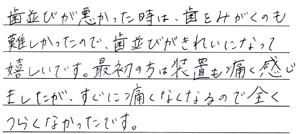 歯並びが悪かった時は、歯をみがくのも
難しかったので、歯並びがきれいになって
嬉しいです。最初の方は装置も痛く感じ
ましたが、すぐに痛くなくなるので全く
つらくなかったです。